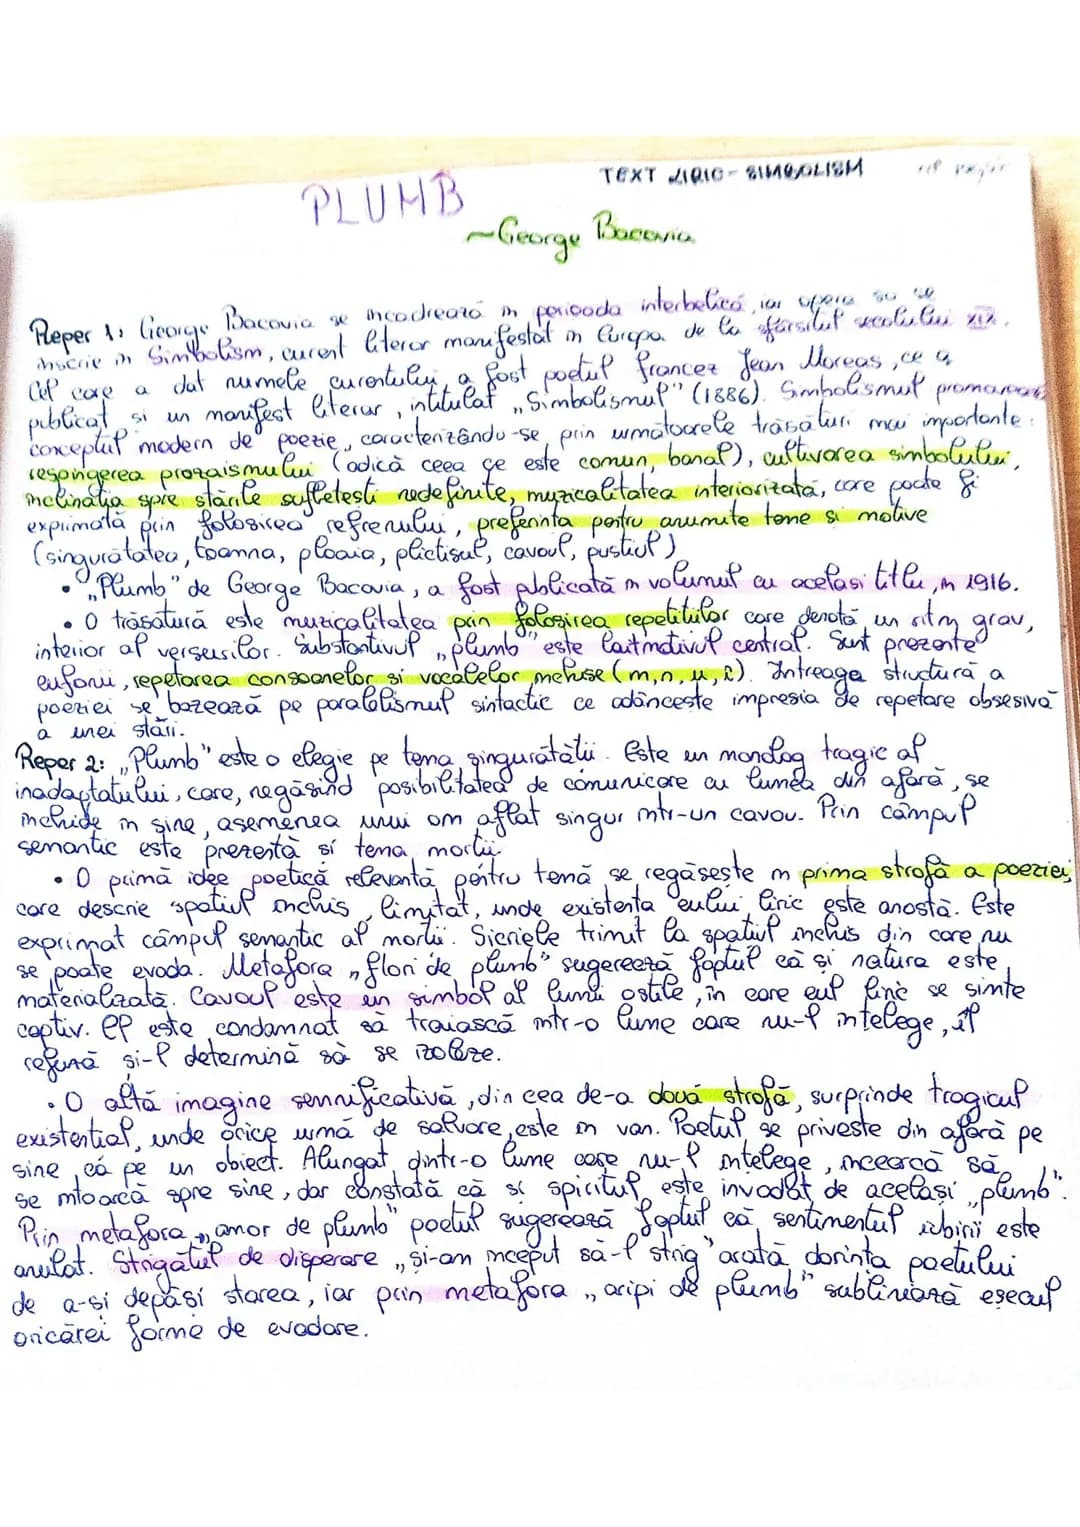 TEXT LIRIC - SIMBOLISM
PLUMB
~George Bacovia
Reper 1: George Bacovia se încadrează în perioada interbelică, iar opera sa se
înscrie în Simbolism, curent literar manifestat în Europa de la sfârsitul secolului XIX.
Cel care a dat numele curentului, a fost poetul francez Jean Moreas, ce a
publicat si un manifest literar, intitulat „Simbolismul" (1886). Simbolismul promovează
conceptul modern de poezie, caracterizându-se prin următoarele trăsături mai importante:
respingerea prozaismului (adică ceea ce este comun, banal), cultivarea simbolului,
inclinatia spre stările sufletesti nedefinite, muzicalitatea interiorizată, care poate fi
exprimată prin folosirea refrenului, preferinta pentru anumite teme si motive
(singurătatea, toamna, ploaia, plictisul, cavoul, pustiul)
• „Plumb" de George Bacovia, a fost publicată în volumul cu acelasi titlu, în 1916.
• O trăsătură este muzicalitatea prin folosirea repetitiilor care denotă un ritm grav,
interior al versurilor. Substantivul „plumb" este laitmotivul central. Sunt prezente
eufonii, repetarea consoanelor si vocalelor închise (m, n, u, i). Întreaga structură a
poeziei se bazează pe paralelismul sintactic ce adânceste impresia de repetare obsesivă
a unei stări.
Reper 2: „Plumb" este o elegie pe tema singurătătii. Este un monolog tragic al
inadaptatului, care, negăsind posibilitatea de comunicare cu lumea din afară, se
închide în sine, asemenea unui om aflat singur într-un cavou. Prin câmpul
semantic este prezentă si tema mortii
• O primă idee poetică relevantă pentru temă se regăseste în prima strofă a poeziei,
care descrie spatiul închis, limitat, unde existenta eului liric este anostă. Este
exprimat câmpul semantic al mortii. Sicriele trimit la spatiul închis din care nu
se poate evada. Metafora „flori de plumb" sugerează faptul că si natura este
materializată. Cavoul este un simbol al lumii ostile, în care eul liric se simte
captiv. El este condamnat să traiască într-o lume care nu-l intelege, îl
refuză si-l determină să se izoleze.
• O altă imagine semnificativă, din cea de-a două strofă, surprinde tragicul
existential, unde orice urmă de salvare este în van. Poetul se priveste din afară pe
sine, că pe un obiect. Alungat dintr-o lume care nu-l intelege, încearcă să
se întoarcă spre sine, dar constată că si spiritul este invadat de acelasi „plumb".
Prin metafora „amor de plumb" poetul sugerează faptul că sentimentul iubirii este
anulat. Strigătul de disperare „si-am inceput să-l strig" arată dorinta poetului
de a-si depăsi starea, iar prin metafora „aripi de plumb" subliniază esecul
oricărei forme de evadare.